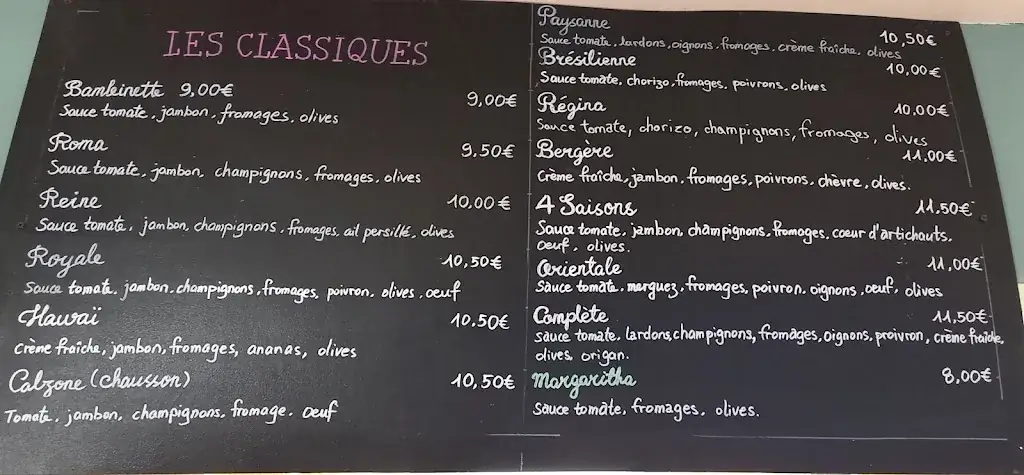 LES CLASSIQUES
Bambinette 9,00€ 9,00€
Sauce tomate, jambon, fromages, olives
Roma 9.50€
Sauce tomate, jambon, champignons, fromages, olives
Reine 10,00€
Sauce tomate, jambon, champignons, fromages, ail persillé, olives
Royale 10,50€
Sauce tomate, jambon, champignons, fromages, poivron, olives, oeuf
Hawaï 10.50€
crème fraîche, jambon, fromages, ananas, olives
Calzone (chausson) 10,50€
Tomate, jambon, champignons, fromage. oeuf
Paysanne 10,50€
Sauce tomate, lardons, oignons, fromages, crème fraîche, olives
Brésilienne 10,00€
Sauce tomate, chorizo, fromages, poivrons, olives
Régina 10,00€
Sauce tomate, chorizo, champignons, fromages, olives
Bergère 11.00€
Crème fraîche, jambon, fromages, poivrons, chèvre, olives.
4 Saisons 11.50€
Sauce tomate, jambon, champignons, fromages, coeur d'artichauts,
oeuf, olives.
Orientale 11,00€
Sauce tomate, merguez, fromages, poivron, oignons, oeuf, olives
Complète 11,50€
sauce tomate, lardons, champignons, fromages, oignons, proivron, crème fraîche,
olives, origan.
Margaritha 8,00€
Sauce tomate, fromages, olives.